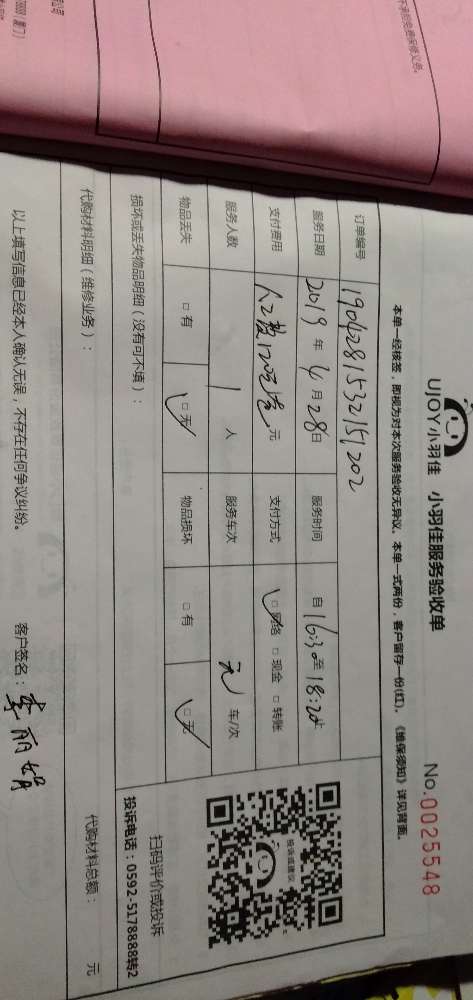 UJOY小羽佳 小羽佳服务验收单 No.0025548
本单一经核签，即视为对本次服务验收无异议。本单一式两份，客户留存一份(红)。《维保须知》详见背面。
订单编号 1904281532151202
服务日期 2019 年 4 月 28 日 服务时间 自 16:30 至 18:20 止
支付费用 元 支付方式 □ 网络 □ 现金 □ 转账
服务人数 1 人 服务车次 无 车/次
物品丢失 □ 有 □ 无 物品损坏 □ 有 □ 无
损坏或丢失物品明细（没有可不填）：
投诉或建议
扫码评价或投诉
投诉电话：0592-5178888转2
代购材料明细（维修业务）： 代购材料总额： 元
以上填写信息已经本人确认无误，不存在任何争议纠纷。 客户签名：李丽娟